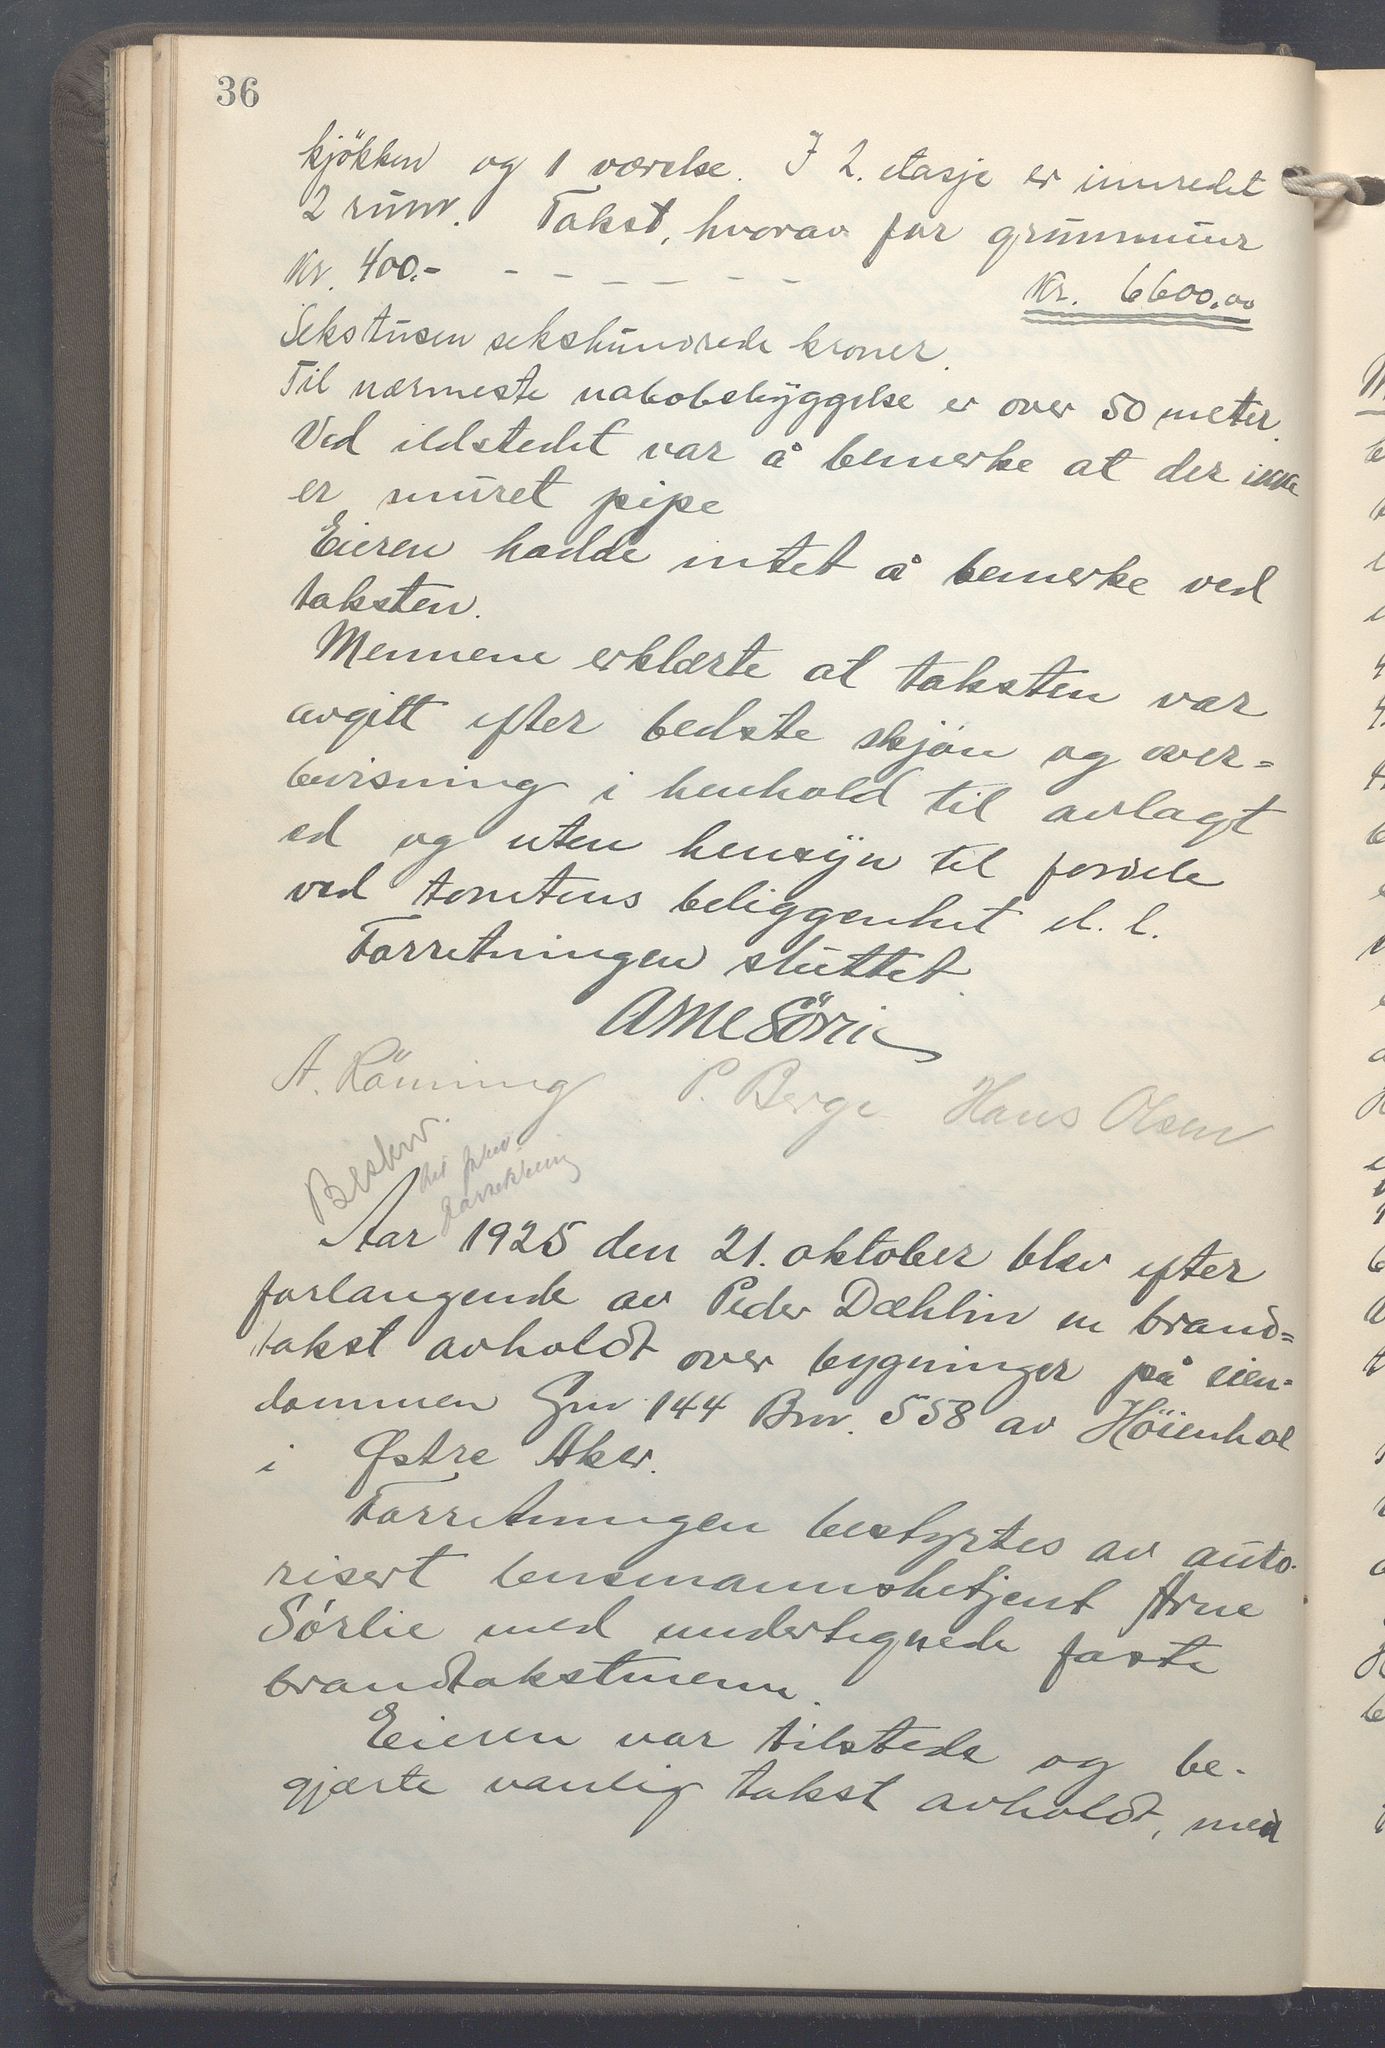 36
kjökken og 1 værelse. I 2. etasje er innredet
2 rum. Takst, hvorav for grunnmur
Kr. 400.- - - - - - - Kr. 6600.00
Sekstusen sekshundrede kroner.
Til nærmeste nabobebyggelse er over 50 meter.
Ved ildstedet var å bemerke at der ikke
er muret pipe
Eieren hadde intet å bemerke ved
taksten.
Mennene erklærte at taksten var
avgitt efter bedste skjøn og over=
bevisning i henhold til avlagt
ed og uten hensyn til fordele
ved tomtens beliggenhet el. l.
Forretningen sluttet.
Arne Sörlie
A. Rönning P. Berge Hans Olsen
Beskr.
Aar 1925 den 21. oktober blev efter
forlangende av Peder Dæhlin en brand=
takst avholdt over bygninger på eien-
dommen Gnr 144 Bnr. 558 av Höienhal
i Østre Aker.
Forretningen bestyrtes av auto-
risert lensmannsbetjent Arne
Sörlie med undertegnede faste
brandtakstmenn.
Eieren var tilstede og be-
gjærte vanlig takst avholdt, med